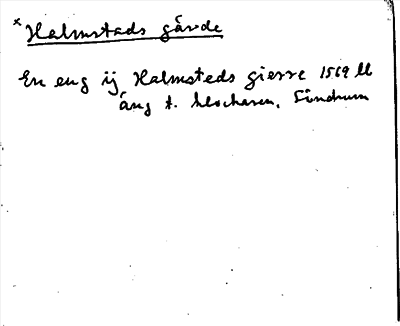 × Halmstads gärde
En eng ij Halmsteds gierre 1569 ll
äng t. klockaren, Findrum